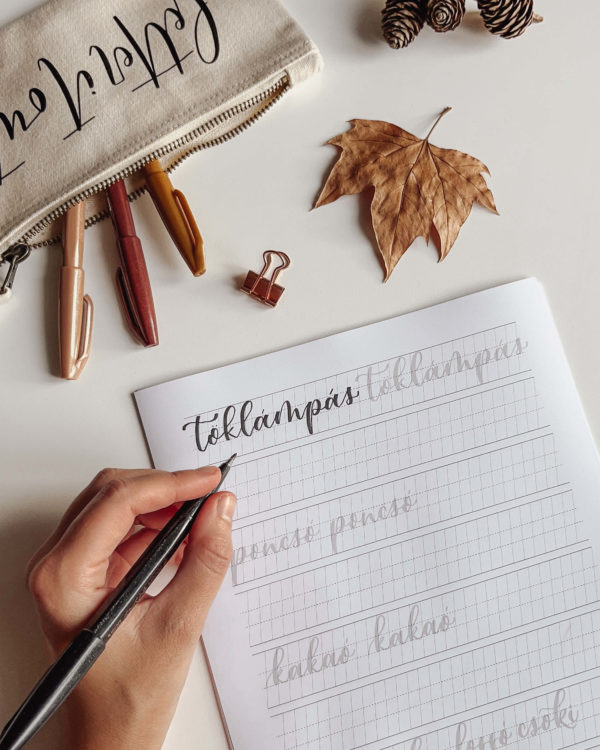 töklámpás töklámpás
poncsó poncsó
kakaó kakaó
csoki